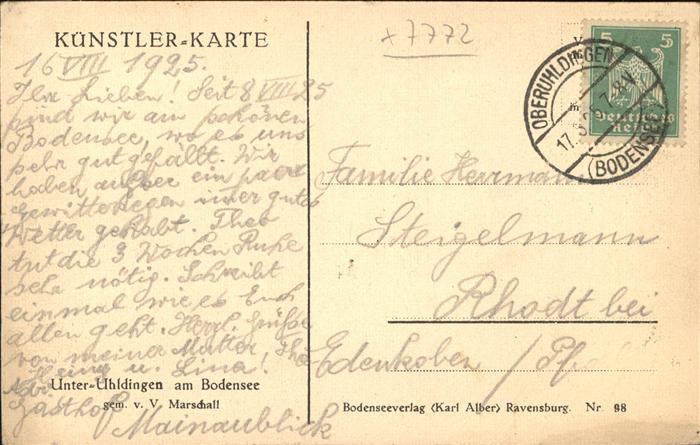 KÜNSTLER-KARTE
x 7772
16 VIII 1925.
Ihr Lieben! Seit 8 VIII 25
sind wir am schönen
Bodensee, wo es uns
sehr gut gefällt. Wir
haben außer ein paar
Gewitterregen immer gutes
Wetter gehabt. Theo
tut die 3 Wochen Ruhe
sehr nötig. Schreibt
einmal wie es Euch
allen geht. Herzl. Grüße
von meiner Mutter, Theo
u. Lina!
Adr.
Gasthof
Mainaublick
Unter-Uhldingen am Bodensee
gem. v. V. Marschall
5 5
Deutsches
Reich
OBERUHLDINGEN
17. 8. 25. 7-8V.
(BODENSEE)
Familie Herrmann
Steigelmann
Rhodt bei
Edenkoben / Pfalz
Bodenseeverlag (Karl Alber) Ravensburg. Nr. 98